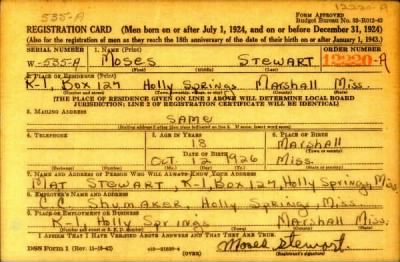 535-A 12220-A
Form Approved
Budget Bureau No. 33-R012-42
REGISTRATION CARD (Men born on or after July 1, 1924, and on or before December 31, 1924)
(Also for the registration of men as they reach the 18th anniversary of the date of their birth on or after January 1, 1943.)
SERIAL NUMBER 1. NAME (Print) ORDER NUMBER
W-535-A Moses Stewart 12220-A
(First) (Middle) (Last)
2. PLACE OF RESIDENCE (Print)
R-1, Box 127 Holly Springs Marshall Miss.
(Number and street) (Town, township, village, or city) (County) (State)
[THE PLACE OF RESIDENCE GIVEN ON LINE 2 ABOVE WILL DETERMINE LOCAL BOARD
JURISDICTION; LINE 2 OF REGISTRATION CERTIFICATE WILL BE IDENTICAL]
3. MAILING ADDRESS
SAME
[Mailing address if other than place indicated on line 2. If same, insert word same]
4. TELEPHONE 5. AGE IN YEARS 6. PLACE OF BIRTH
18 Marshall
DATE OF BIRTH
Oct. 12 1926 Miss.
(Exchange) (Number) (Mo.) (Day) (Yr.) (State or country)
7. NAME AND ADDRESS OF PERSON WHO WILL ALWAYS KNOW YOUR ADDRESS
Mat Stewart, R-1, Box 127, Holly Springs, Miss.
8. EMPLOYER'S NAME AND ADDRESS
C.C. Shumaker, Holly Springs, Miss.
9. PLACE OF EMPLOYMENT OR BUSINESS
R-1 Holly Springs Marshall Miss.
(Number and street or R. F. D. number) (Town) (County) (State)
I AFFIRM THAT I HAVE VERIFIED ABOVE ANSWERS AND THAT THEY ARE TRUE.
DSS Form 1 (Rev. 11-16-42) (OVER) Moses Stewart